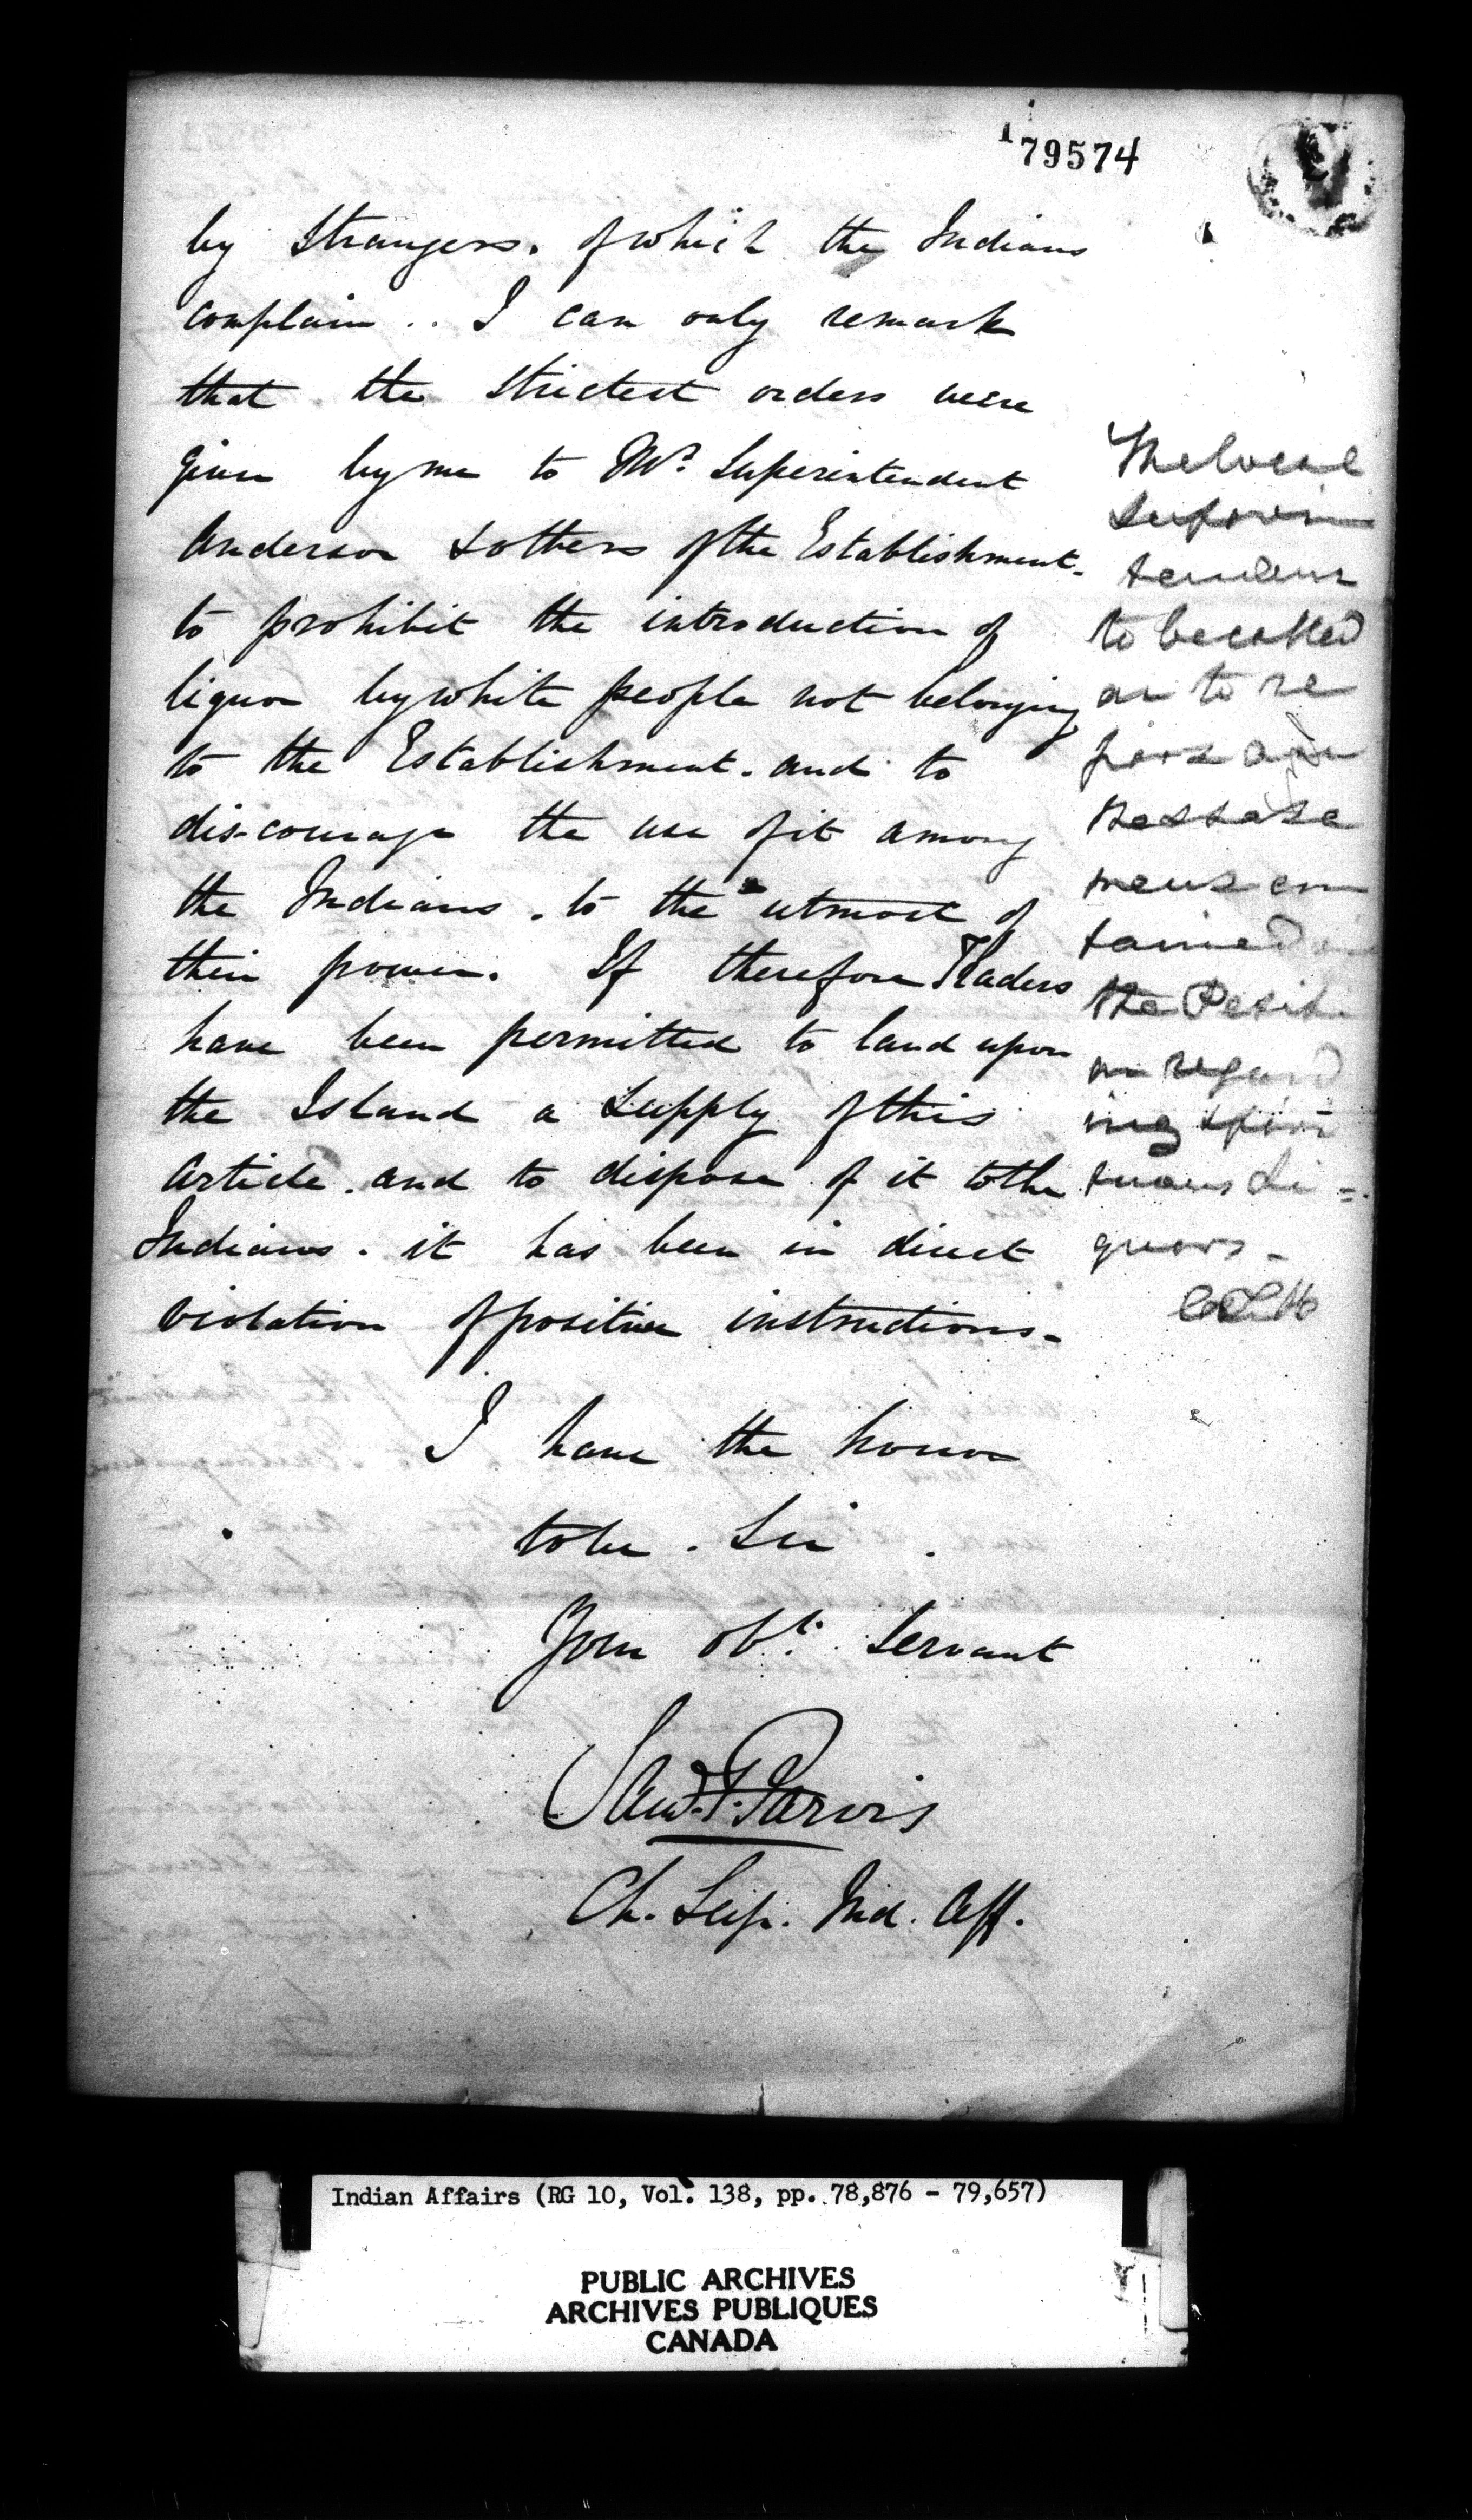 179574
by Strangers. of which the Indians
complain .. I can only remark
that the Strictest orders were
given by me to Mr. Superintendent
Anderson & others of the Establishment.
to prohibit the introduction of
liquor by white people not belonging
to the Establishment. and to
dis-courage the use of it among
the Indians. to the utmost of
their power. If therefore Traders
have been permitted to land upon
the Island a Supply of this
article. and to dispose of it to the
Indians. it has been in direct
violation of positive instructions.
I have the honor
to be. Sir
Your obt. Servant
Saml. P. Jarvis
Ch. Sup. Ind. Aff.
The local
Superin
tendent
to be called
on to re
port on
the state
ment con
tained in
the Petit.
on regard
ing spiri
tuous Li=
quors.
Indian Affairs (RG 10, Vol. 138, pp. 78,876 - 79,657)
PUBLIC ARCHIVES
ARCHIVES PUBLIQUES
CANADA